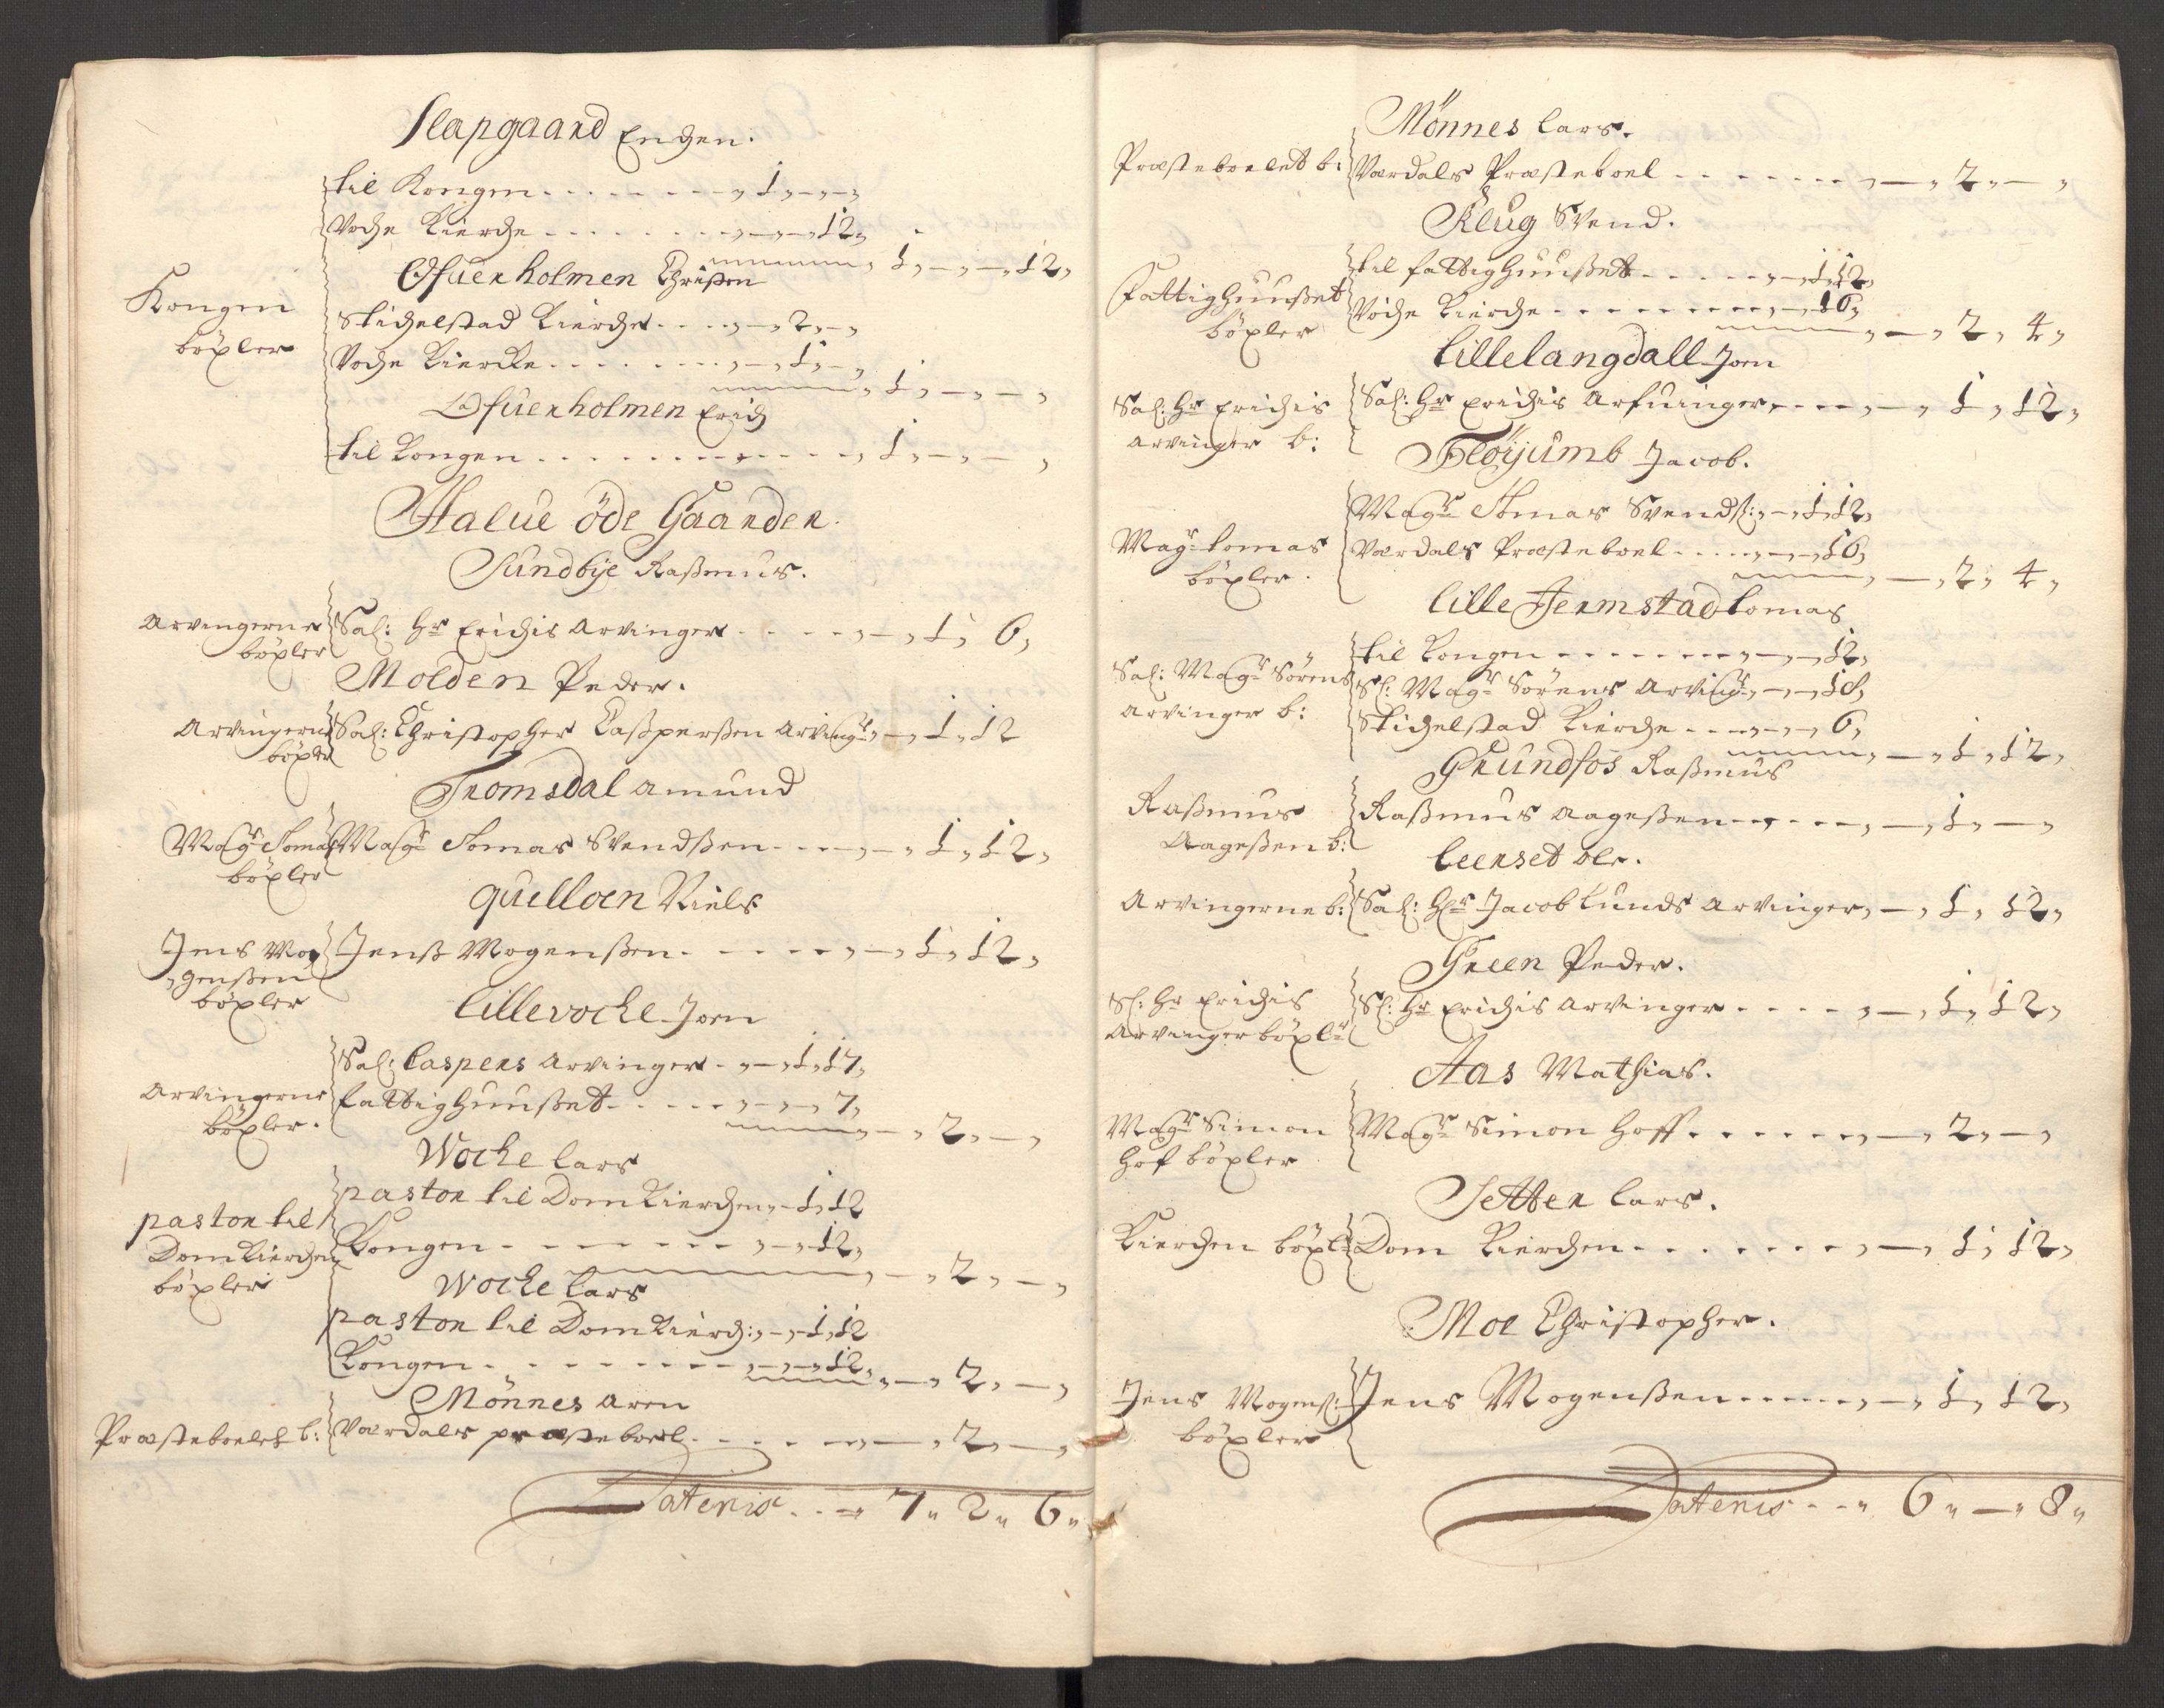 Slapgaard Enchen.
til Kongen . . . . . . . . „ 1 „ — „ — „
Voche Kierche . . . . . . . „ — „ — „ 12 „
„ 1 „ — „ — „ 12 „
Ofuerholmen Christen
Kongen bøxler
Stichelstad Kierche . . . . „ — „ 2 „ — „
Voche Kiercke . . . . . . . „ — „ 1 „ — „
„ 1 „ — „ — „
Ofuerholmen Erich
til Kongen . . . . . . . . . . . . „ 1 „ — „ — „
Halue öde Gaarder.
Sundbÿe Raßmus.
Arvingerne bøxler
Sal: Hr Erichis Arvinger . . . . . „ — „ 1 „ 6 „
Molden Peder.
Arvingerne bøxler
Sal: Christopher Caßperßen Arvingr „ — „ 1 „ 12
Tromsdal Amund
Magr Tomas bøxler
Magr Tomas Svendßen . . . . „ — „ 1 „ 12 „
quelloen Niels
Jens Mogenßen bøxler
Jenß Mogenßen . . . . . „ — „ 1 „ 12 „
lillevocke Joen
Sal: Caspers Arvinger . „ — „ 1 „ 17 „
Arvingerne bøxler.
fattighuußet . . . . . „ — „ — „ 7 „
„ — „ 2 „ — „
Wocke Lars
pastor til Domkierchen „ — 1 „ 12
pastor til Domkierchen bøxler
Kongen . . . . . . . . „ — „ 12 „
„ — „ 2 „ — „
Wocke Lars
pastor til Domkierch: „ — „ 1 „ 12
Kongen . . . . . . . . „ — „ — „ 12 „
„ — „ 2 „ — „
Mönnes Aren
Præsteboelet b: Værdals præsteboel . . . . . . „ — „ 2 „ — „
Lateris . . „ 7 „ 2 „ 6 „
Mönnes Lars.
Præsteboelet b: Værdals Præsteboel . . . . . . . „ — „ 2 „ — „
Klug Svend.
til fattighuußet . . . . . . „ — „ 1 „ 12 „
Fattighuußet bøxler
Voche Kierche . . . . . . . . „ — „ 16 „
„ — „ 2 „ 4 „
Lillelangdall Joen
Sal: Hr Erichis Arvinger b:
Sal: Hr Erichis Arfuinger . . . . „ — „ 1 „ 12 „
Flöÿjumb Jacob.
Magr Tomas Svendß: „ — „ 1 „ 12 „
Magr Tomas bøxler.
Værdals Præsteboel . . . . . „ — „ — „ 16 „
„ — „ 2 „ 4 „
Lille Jermstad Tomas
til Kongen . . . . . . . . . „ — „ — „ 12 „
Sal: Magr Sörens Arvinger b:
Sl: Magr Sörens Arvingr „ — „ — „ 18 „
Stichelstad Kierche . . . „ — „ — „ 6 „
„ — „ 1 „ 12 „
Grundfos Raßmus
Raßmus Aageßen b:
Raßmus Aageßen . . . . . . „ — „ 1 „ — „
Leerset Ole.
Arvingerne b: Sal: Hr Jacob Lunds Arvinger „ — „ 1 „ 12 „
Green Peder.
Sl: Hr Erichis Arvinger bøxlr
Sl: Hr Erichis Arvinger . . . . „ — „ 1 „ 12 „
Aas Mathias.
Magr Simon Hof bøxler
Magr Simon Hoff . . . . . . „ — „ 2 „ — „
Setter Lars.
Kierchen bøxlr Dom Kierchen . . . . . . . „ — „ 1 „ 12 „
Moe Christopher.
Jens Mogenß: bøxler
Jens Mogenßen . . . . . . „ — „ 1 „ 12 „
Lateris . . „ 6 „ — „ 8 „